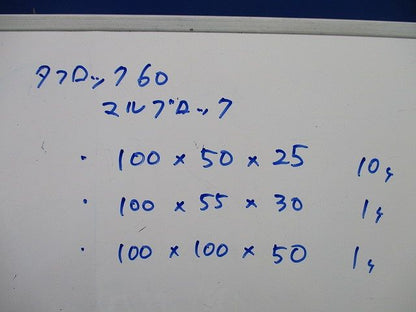 タフロック 60
マルブロック
・ 100 × 50 × 25 10ヶ
・ 100 × 55 × 30 1ヶ
・ 100 × 100 × 50 1ヶ